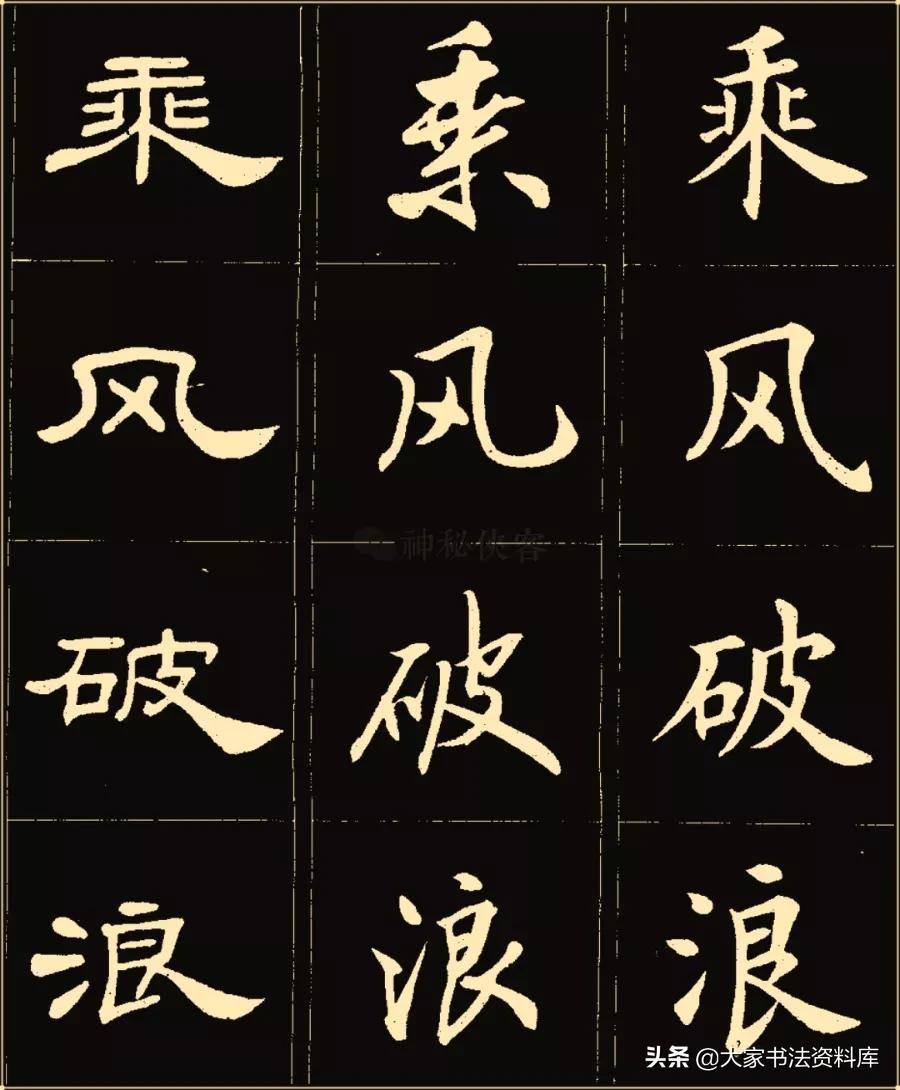 乘 乘 乘
风 风 风
神秘侠客
破 破 破
浪 浪 浪
头条 @大家书法资料库